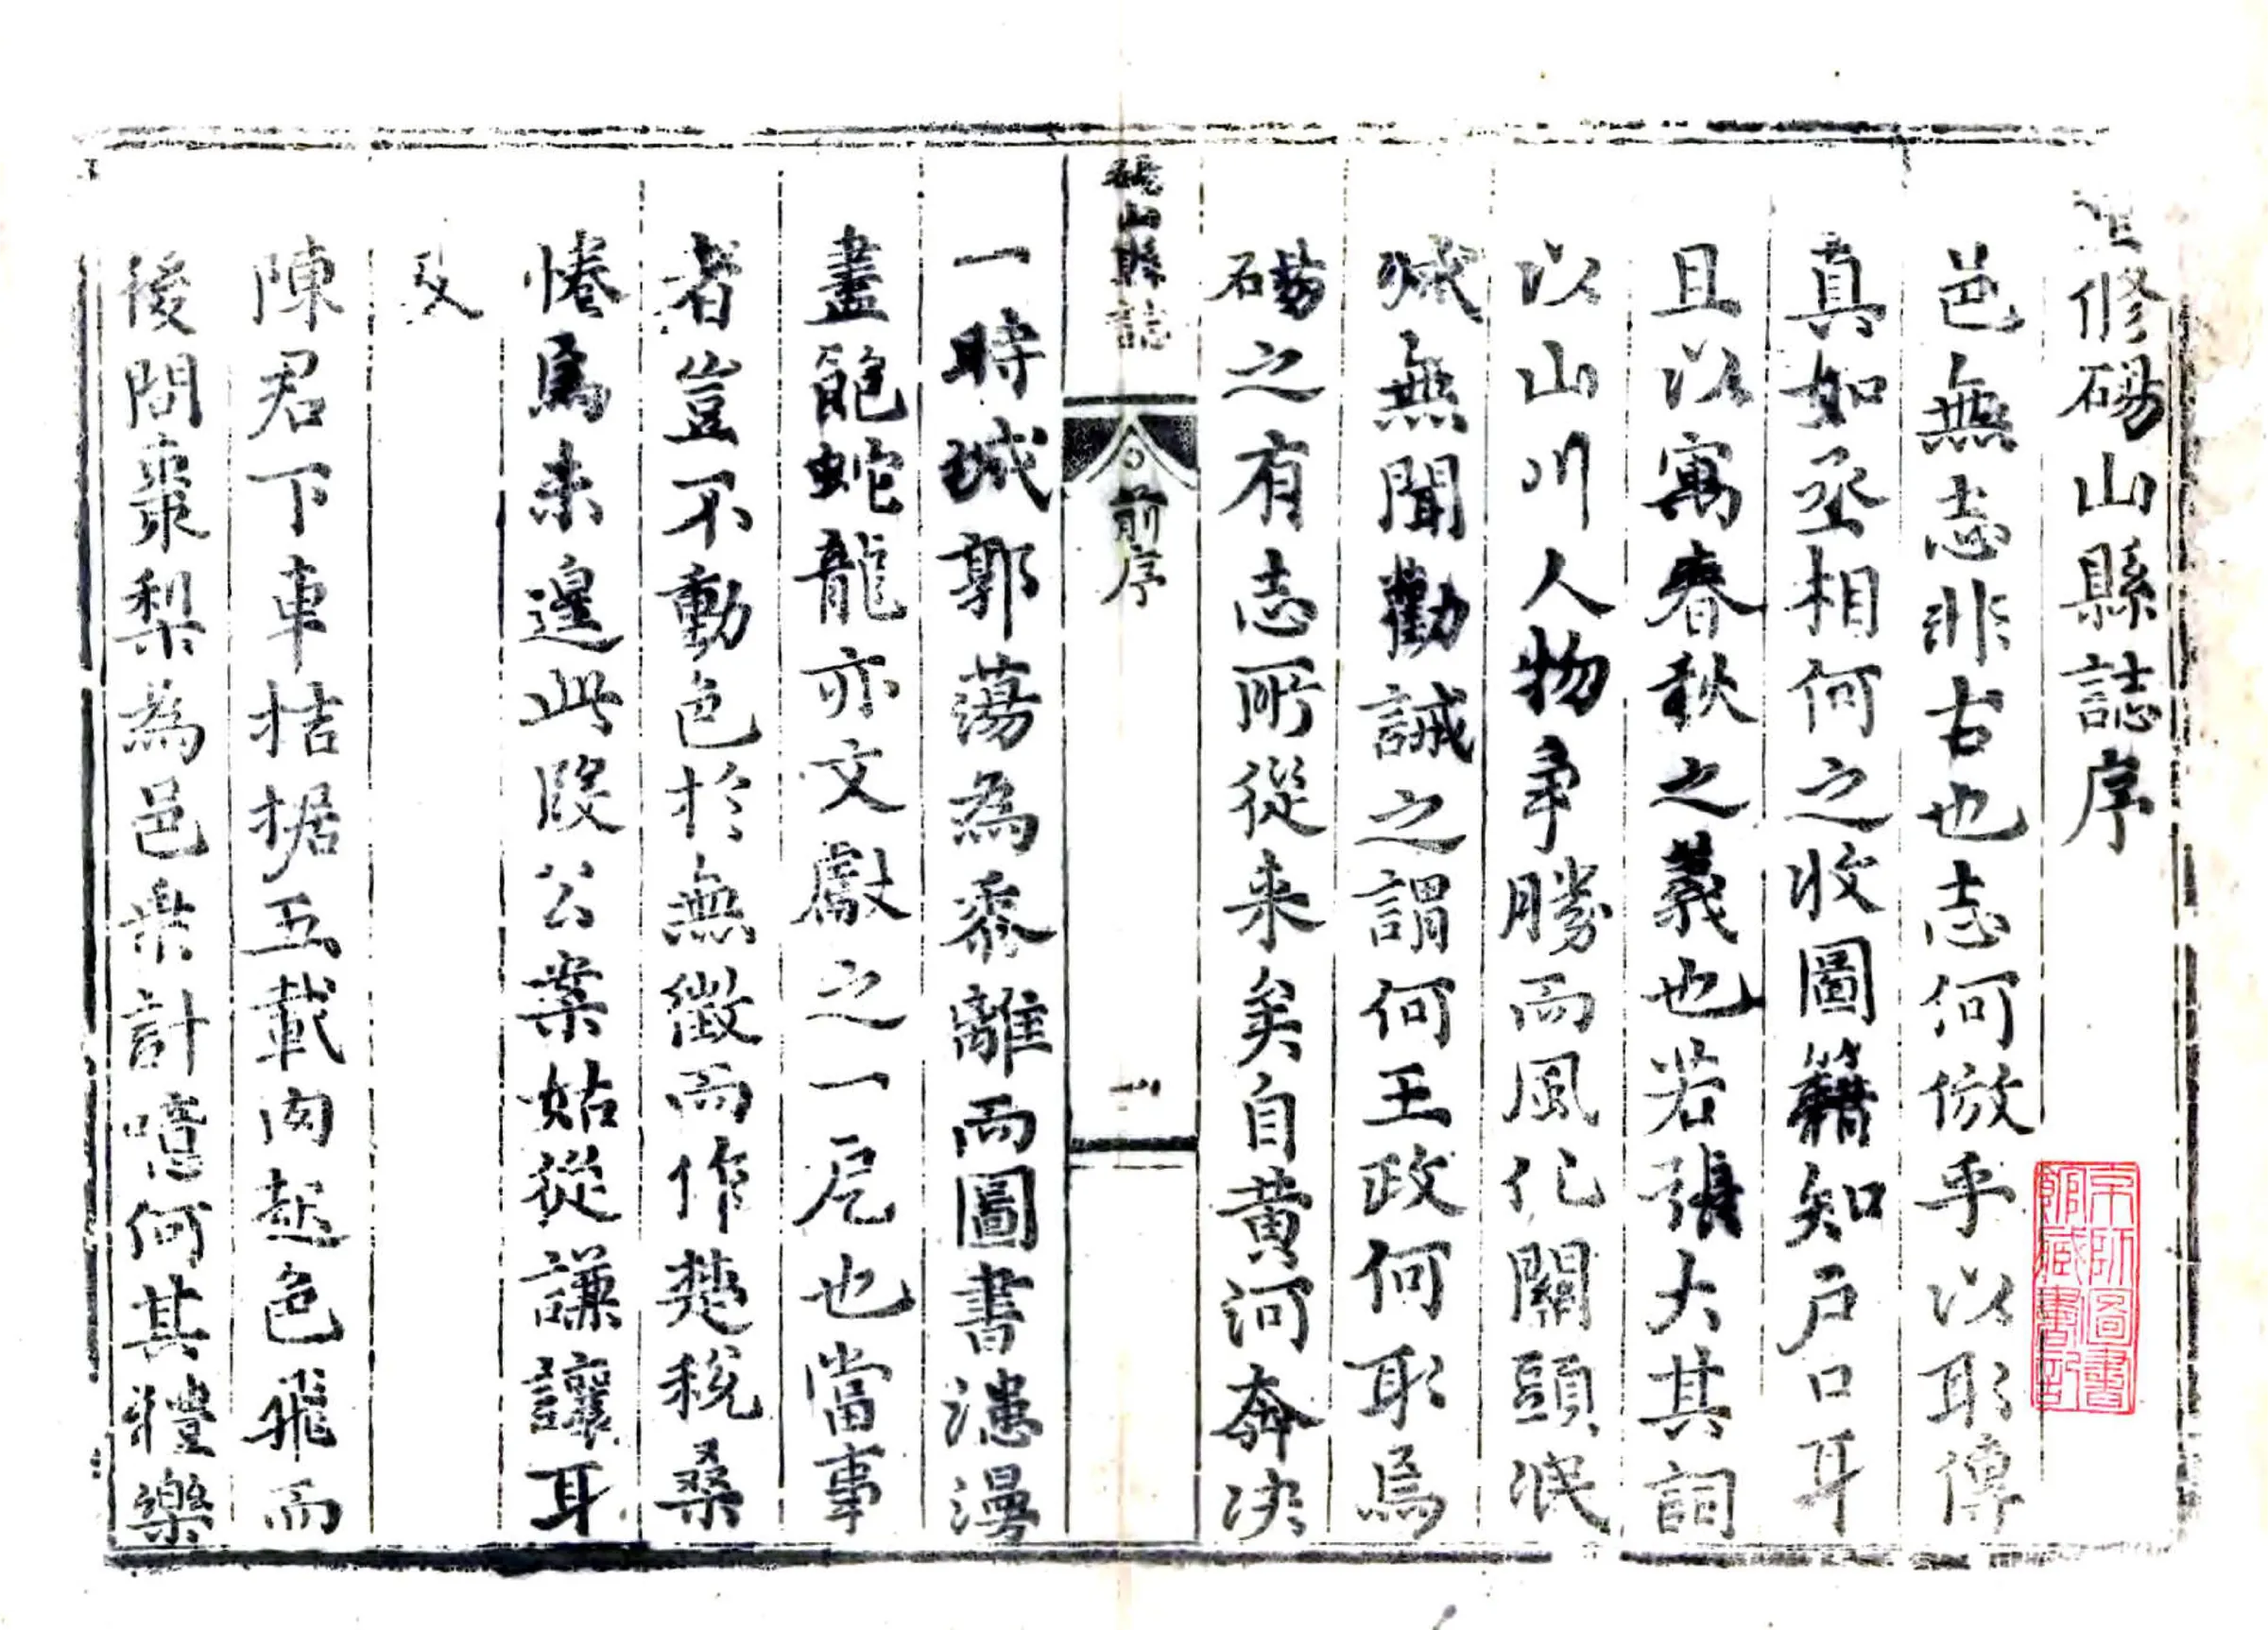 重修碭山縣誌序
邑無志非古也志何倣乎以耶傳
真如丞相何之收圖籍知戶口耳
且以寓春秋之義也若張大其詞
以山川人物爭勝而風化關頭泯
減無聞勸誡之謂何王政何耶焉
碭之有志所從来矣自黄河奔決
碭山縣誌
前序
一
一時城郭蕩為黍離而圖書漶漫
盡飽蛇龍亦文獻之一厄也當事
者豈不動色於無徵而作楚稅桑
惓焉未遑此段公案姑從謙讓耳
及
陳君下車拮据五載肉起色飛而
後問棗梨為邑乘計噫何其禮樂